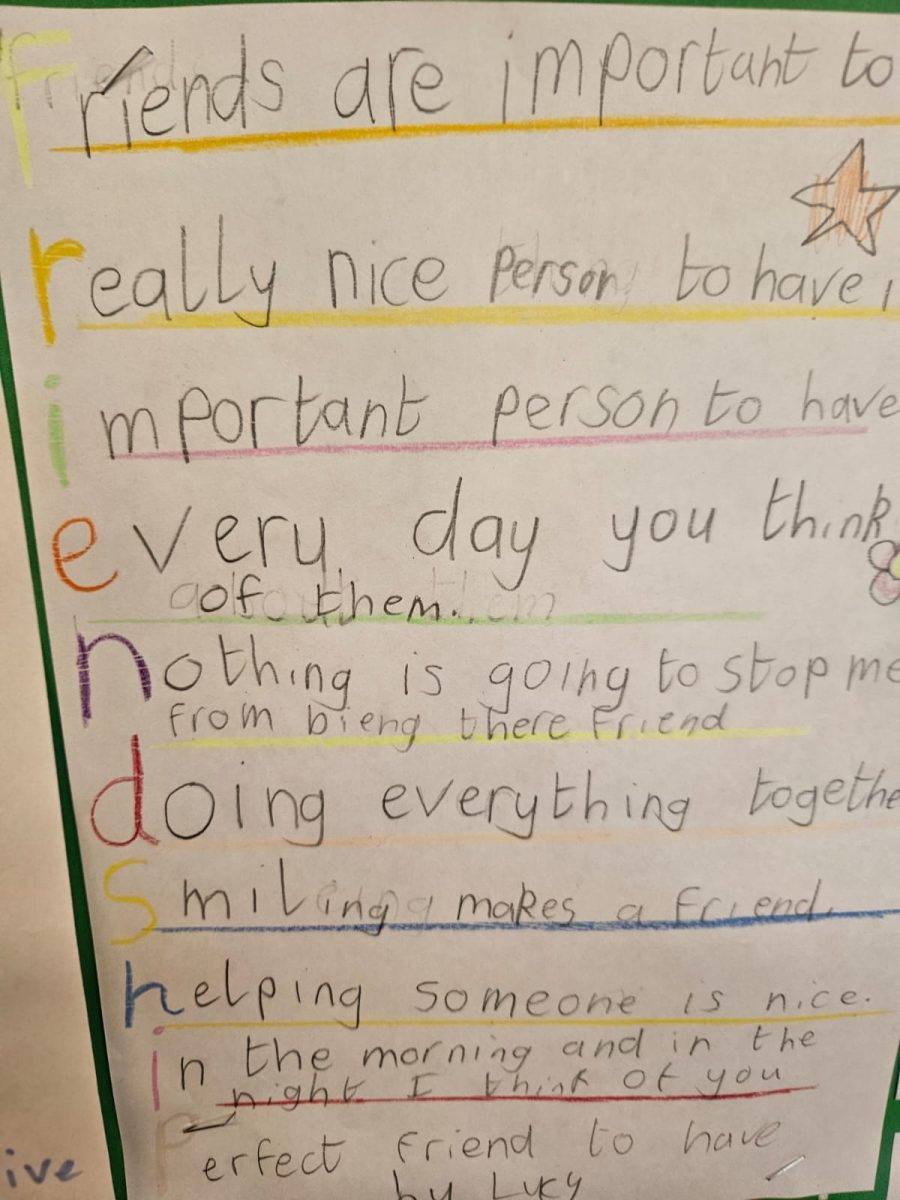 Friends are important to
really nice person to have
important person to have
every day you think
of them.
nothing is going to stop me
from bieng there friend
doing everything togethe
Smiling makes a friend.
helping someone is nice.
in the morning and in the
night I think of you
Perfect friend to have
by Lucy
ive